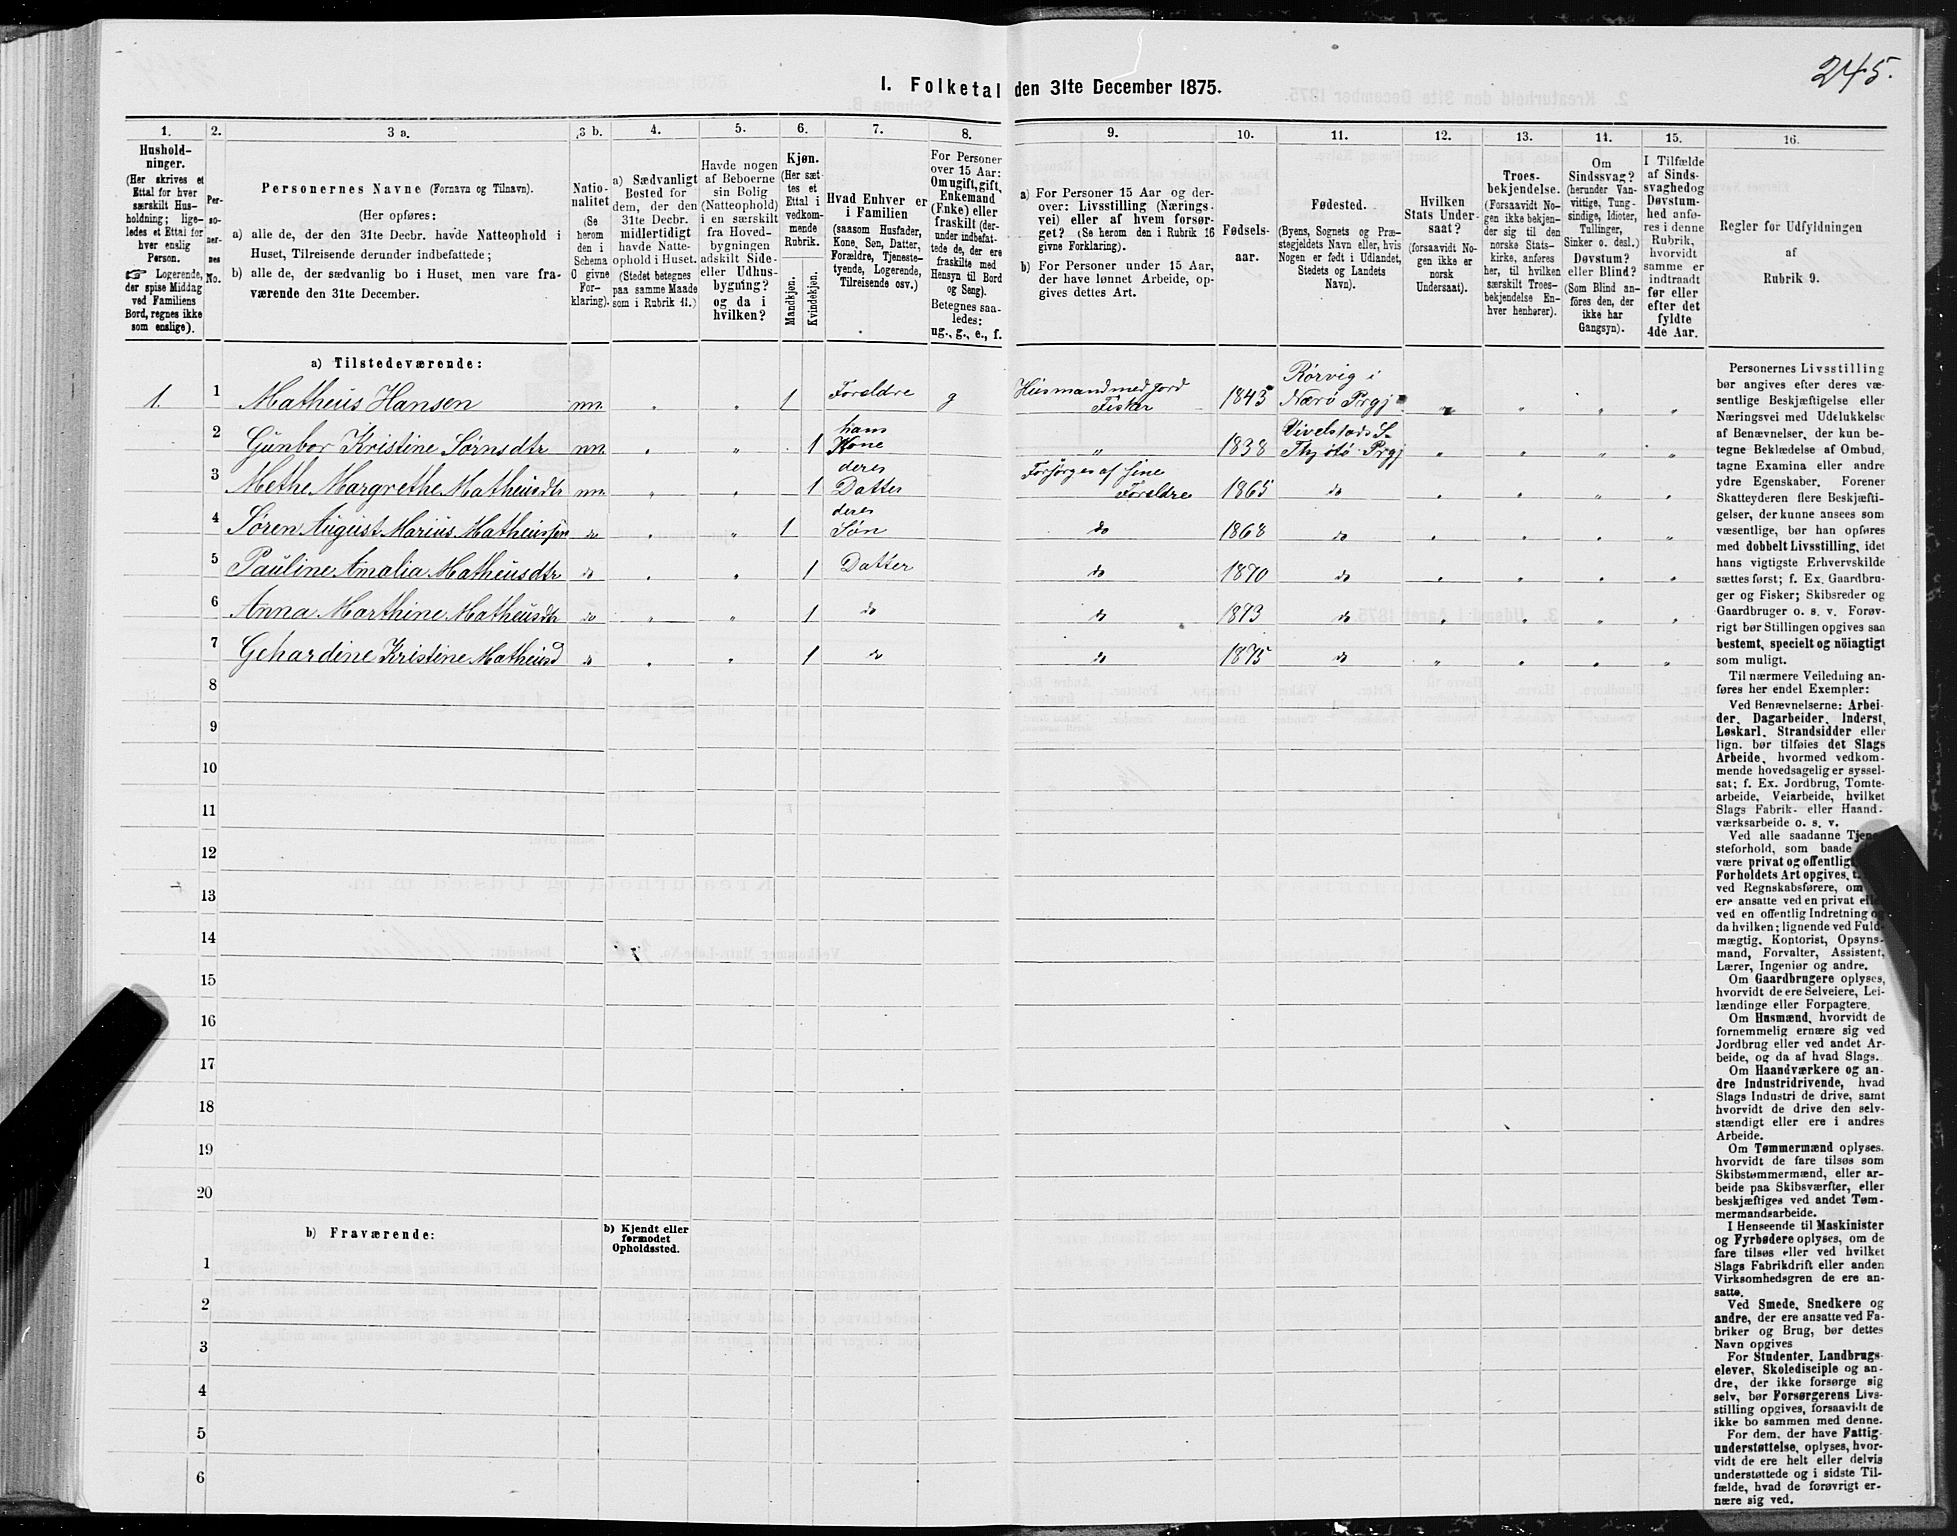 245.
I. Folketal den 31te December 1875.
1.
2.
3 a.
3 b.
4.
5.
6.
7.
8.
9.
10.
11.
12.
13.
14.
15.
16.
Hushold-
ninger.
(Her skrives et
Ettal for hver
særskilt Hus-
holdning; lige-
ledes et Ettal for
hver enslig
Person.
☞ Logerende,
der spise Middag
ved Familiens
Bord, regnes ikke
som enslige).
Per-
so-
ner-
nes
No.
Personernes Navne (Fornavn og Tilnavn).
(Her opføres:
a) alle de, der den 31te Decbr. havde Natteophold i
Huset, Tilreisende derunder indbefattede;
b) alle de, der sædvanlig bo i Huset, men vare fra-
værende den 31te December.
Natio-
nalitet
(Se
herom
den i
Schema
C givne
For-
klaring).
a) Sædvanligt
Bosted for
dem, der den
31te Decbr.
midlertidigt
havde Natte-
ophold i Huset.
(Stedet betegnes
paa samme Maade
som i Rubrik 11.)
Havde nogen
af Beboerne
sin Bolig
(Natteophold)
i en særskilt
fra Hoved-
bygningen
adskilt Side-
eller Udhus-
bygning?
og da i
hvilken?
Kjøn.
(Her sæt-
tes et
Ettal i
vedkom-
mende
Rubrik.
Mandkjøn.
Kvindekjøn.
Hvad Enhver er
i Familien
(saasom Husfader,
Kone, Søn, Datter,
Forældre, Tjeneste-
tyende, Logerende,
Tilreisende osv.)
For Personer
over 15 Aar:
Om ugift, gift,
Enkemand
(Enke) eller
fraskilt (der-
under indbefat-
tede de, der ere
fraskilte med
Hensyn til Bord
og Seng).
Betegnes saa-
ledes:
ug., g., e., f.
a) For Personer 15 Aar og der-
over: Livsstilling (Nærings-
vei) eller af hvem forsør-
get? (Se herom den i Rubrik 16
givne Forklaring).
b) For Personer under 15 Aar,
der have lønnet Arbeide, op-
gives dettes Art.
Fødsels-
aar.
Fødested.
(Byens, Sognets og Præ-
stegjeldets Navn eller, hvis
Nogen er født i Udlandet,
Stedets og Landets
Navn).
Hvilken
Stats Under-
saat?
(forsaavidt No-
gen ikke er
norsk
Undersaat).
Troes-
bekjendelse.
(Forsaavidt No-
gen ikke bekjen-
der sig til den
norske Stats-
kirke, anføres
her, til hvilken
særskilt Troes-
bekjendelse En-
hver henhører).
Om
Sindssvag?
(herunder Van-
vittige, Tung-
sindige, Idioter,
Tullinger,
Sinker o. desl.)
Døvstum?
eller Blind?
(Som Blind an-
føres den, der
ikke har
Gangsyn).
I Tilfælde
af Sinds-
svaghed og
Døvstum-
hed anfø-
res i denne
Rubrik,
hvorvidt
samme er
indtraadt
før eller
efter det
fyldte
4de Aar.
Regler for Udfyldningen
af
Rubrik 9.
a) Tilstedeværende:
1. 1 Matheus Hansen nn. „ „ 1 Foreldre g Husmand med jord Fisker 1843 Rørvig i Nærø Prgj „ „ „ „
2 Gunbor Kristine Sørnsdtr nn. „ „ 1 hans Kone „ 1838 Vivelstads S. Thjøtø Prgj „ „ „ „
3 Methe Margrethe Matheusdtr nn. „ „ 1 deres Datter Forsørges af sine Foreldre 1865 do „ „ „ „
4 Søren August Marius Matheussen do „ „ 1 deres Søn do 1868 do „ „ „ „
5 Pauline Amalia Matheusdtr do „ „ 1 Datter do 1870 do „ „ „ „
6 Anna Marthine Matheusdtr do „ „ 1 do do 1873 do „ „ „ „
7 Gehardine Kristine Matheusd do „ „ 1 do do 1875 do „ „ „ „
8
9
10
11
12
13
14
15
16
17
18
19
20
b) Fraværende:
b) Kjendt eller
formodet
Opholdssted.
1
2
3
4
5
6
Personernes Livsstilling
bør angives efter deres væ-
sentlige Beskjæftigelse eller
Næringsvei med Udelukkelse
af Benævnelser, der kun be-
tegne Beklædelse af Ombud,
tagne Examina eller andre
ydre Egenskaber. Forener
Skatteyderen flere Beskjæfti-
gelser, der kunne ansees som
væsentlige, bør han opføres
med dobbelt Livsstilling, idet
hans vigtigste Erhvervskilde
sættes først; f. Ex. Gaardbru-
ger og Fisker; Skibsreder og
Gaardbruger o. s. v. Forøv-
rigt bør Stillingen opgives saa
bestemt, specielt og nöiagtigt
som muligt.
Til nærmere Veiledning an-
føres her endel Exempler:
Ved Benævnelserne: Arbei-
der, Dagarbeider, Inderst,
Løskarl, Strandsidder eller
lign. bør tilføies det Slags
Arbeide, hvormed vedkom-
mende hovedsagelig er syssel-
sat; f. Ex. Jordbrug, Tomte-
arbeide, Veiarbeide, hvilket
Slags Fabrik- eller Haand-
værksarbeide o. s. v.
Ved alle saadanne
steforhold, som baade
være privat og offentligt
Forholdets Art opgives,
ved Regnskabsførere, om
ere ansatte ved en privat
ved en offentlig Indretning
da hvilken; lignende ved Fuld-
mægtig, Kontorist, Opsyns-
mand, Forvalter, Assistent,
Lærer, Ingeniør og andre.
Om Gaardbrugere oplyses,
hvorvidt de ere Selveiere, Lei-
lændinge eller Forpagtere.
Om Husmænd, hvorvidt de
fornemmelig ernære sig ved
Jordbrug eller ved andet Ar-
beide, og da af hvad Slags.
Om Haandværkere og an-
dre Industridrivende, hvad
Slags Industri de drive, samt
hvorvidt de drive den selv-
stændigt eller ere i andres
Arbeide.
Om Tømmermænd oplyses,
hvorvidt de fare tilsøs som
Skibstømmermænd, eller ar-
beide paa Skibsværfter, eller
beskjæftiges ved andet Tøm-
mermandsarbeide.
I Henseende til Maskinister
og Fyrbødere oplyses, om de
fare tilsøs eller ved hvilket
Slags Fabrikdrift eller anden
Virksomhedsgren de ere an-
satte.
Ved Smede, Snedkere og
andre, der ere ansatte ved Fa-
briker og Brug, bør dettes
Navn opgives
For Studenter, Landbrugs-
elever, Skoledisciple og an-
dre, der ikke forsørge sig
selv, bør Forsørgerens Livs-
stilling opgives, forsaavidt de
ikke bo sammen med denne.
For dem, der have Fattig-
understøttelse, oplyses, hvor-
vidt de ere helt eller delvis
understøttede og i sidste Til-
fælde, hvad de forøvrigt er-
nære sig ved.